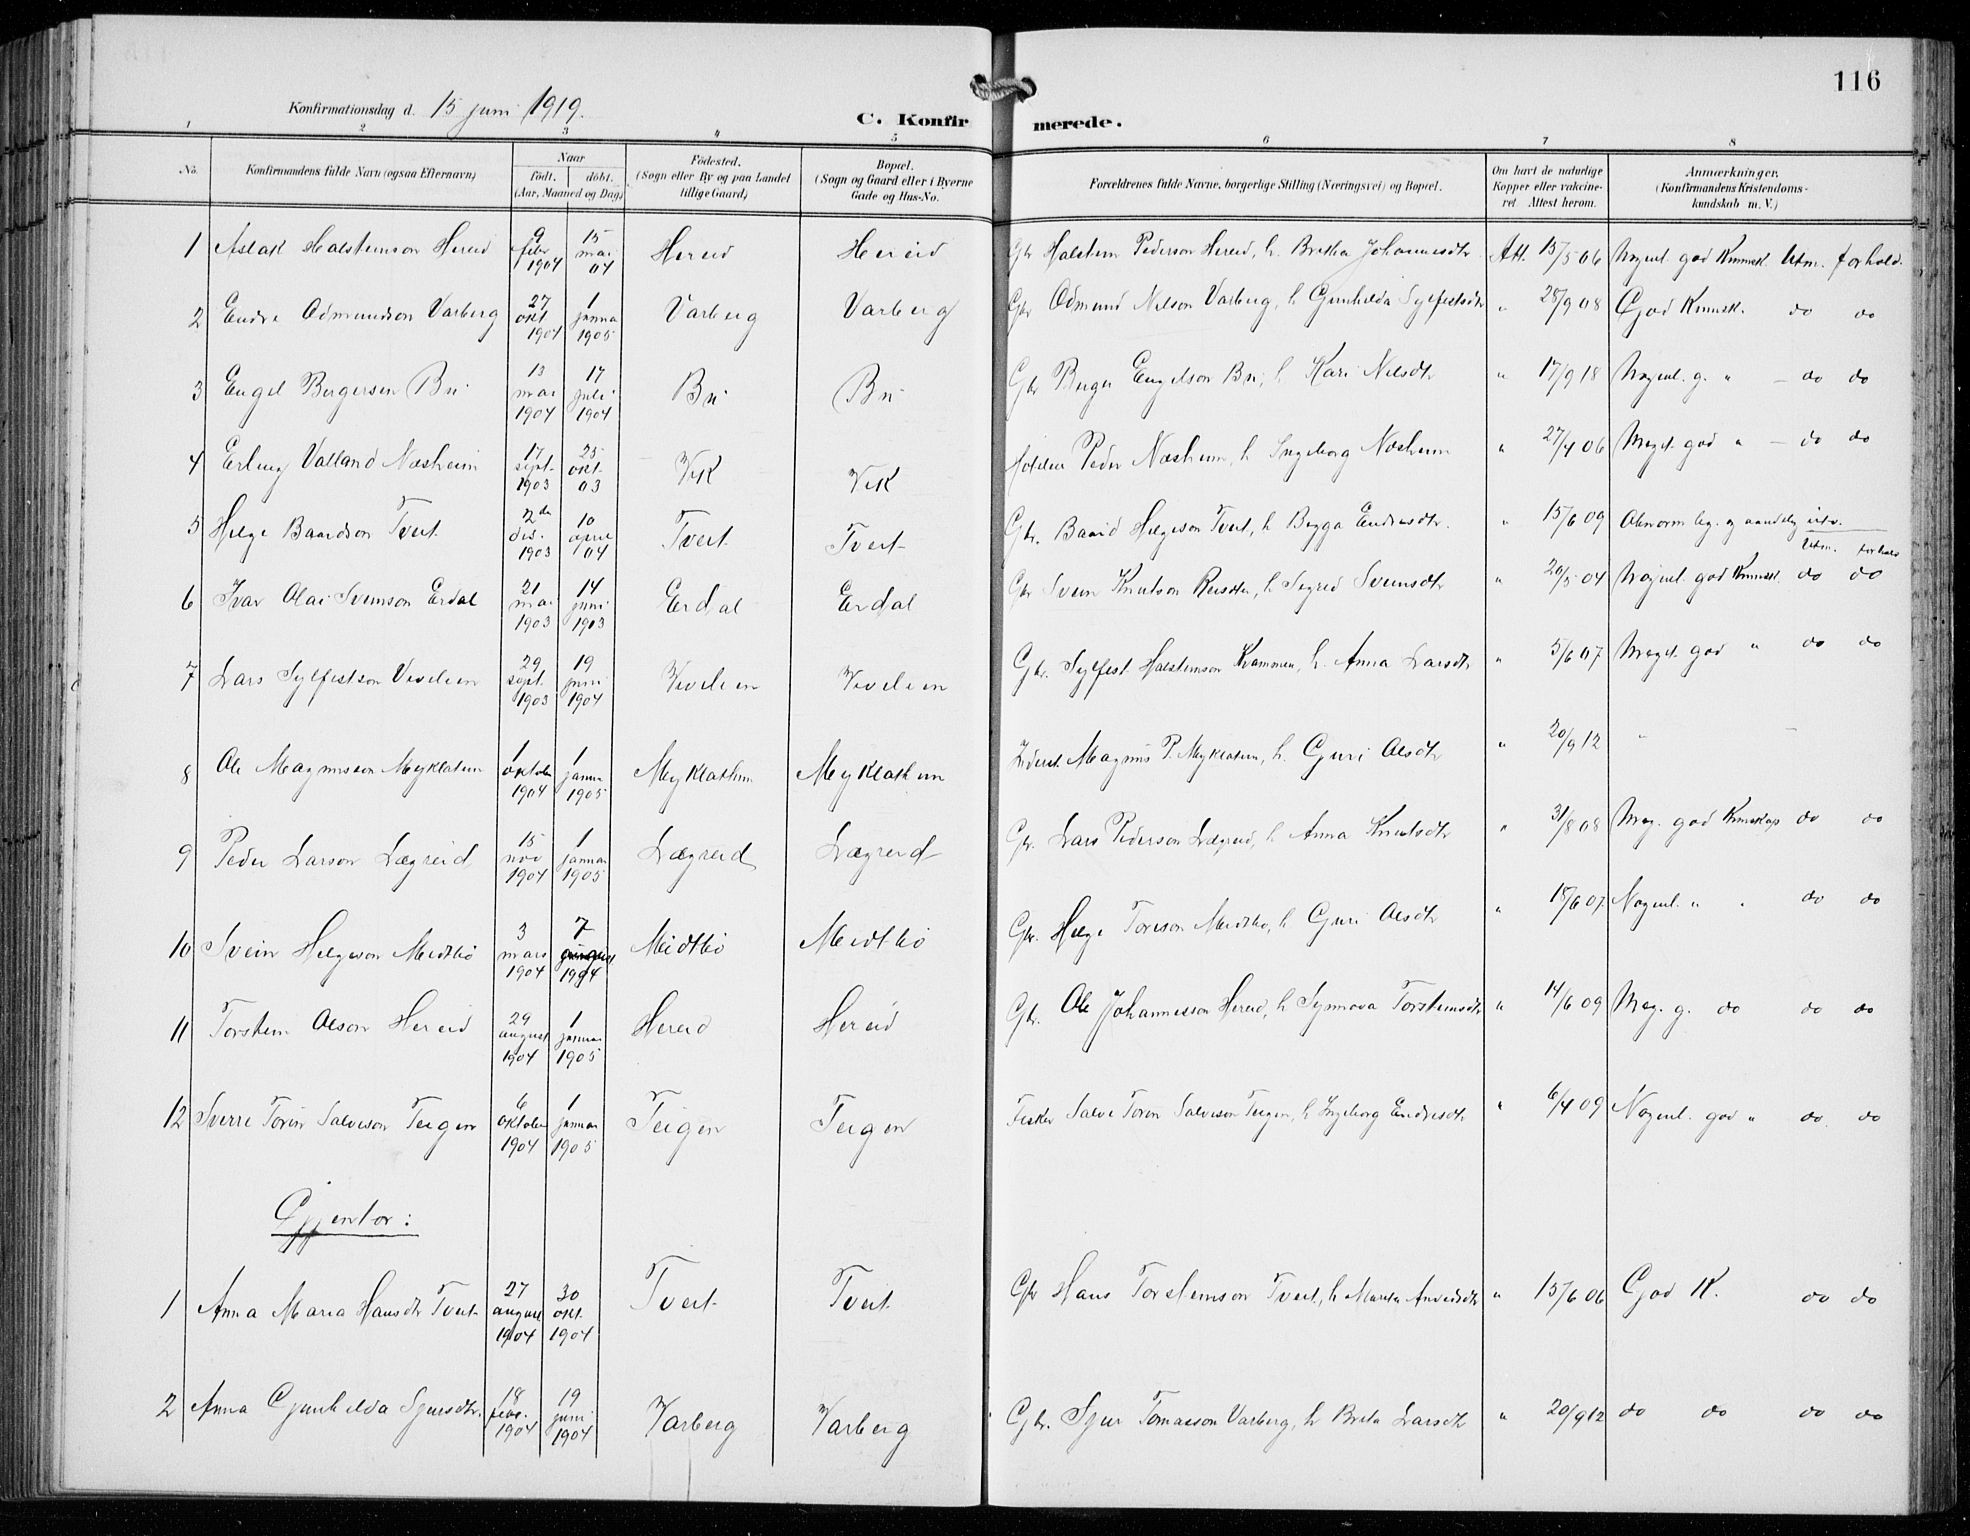 116
Konfirmationsdag d. 15 juni 1919.
C. Konfirmerede.
1 2 3 4 5 6 7 8
No.
Konfirmandens fulde Navn (ogsaa Efternavn)
Naar
født. døbt.
(Aar, Maaned og Dag)
Fødested.
(Sogn eller By og paa Landet
tillige Gaard)
Bopæl.
(Sogn og Gaard eller i Byerne
Gade og Hus-No.
Forældrenes fulde Navne, borgerlige Stilling (Næringsvei) og Bopæl.
Om havt de naturlige
Kopper eller vakcine-
ret Attest herom.
Anmærkninger.
(Konfirmandens Kristendoms-
kundskab m. V.)
1 Aslak Halsteinson Hereid 9 febr 1904 15 mai 04 Hereid Hereid Gbr Halstein Pederson Hereid, h. Britha Johannesdtr Att. 15/5 06 Nogenl. god Kunnsk. Utm. forhold.
2 Endre Odmundson Varberg 27 okt 1904 1 janua 1905 Varberg Varberg Gbr Odmund Nilson Varberg, h Gunhilda Sylfestsdtr " 28/9 08 God Kunnsk. do do
3 Engel Bergersen Bu 13 mai 1904 17 juli 1904 Bu Bu Gbr Berger Engelson Bu, h Kari Nilsdtr " 17/9 18 Nogenl. g. " — do do
4 Erling Valland Næsheim 17 sept. 1903 25 okt. 03 Vik Vik Peder Næsheim, h Ingeborg Næsheim " 27/4 06 Meget god " — do do
5 Helge Baardson Tveit 2den des. 1903 10 april 04 Tveit Tveit Gbr. Baard Helgeson Tveit, h Brygga Endresdtr. " 15/6 09 Abnorm leg. og aandelig utv. Utm. forhold
6 Ivar Olai Sveinson Erdal 21 mai 1903 14 juni 1903 Erdal Erdal Gbr Svein Knutson h Sigrid Sveinsdtr " 20/5 04 Nogenl. god Kunnsk. do do
7 Lars Sylfestson Viveliun 29 sept. 1903 19 juni 1904 Viveliun Viveliun Gbr. Sylfest Halsteinson Kvammen, h. Anna Larsdtr " 5/6 07 Meget god " do do
8 Ole Magnusson Myklatun 1 oktober 1904 1 janua 1905 Myklathun Myklathun Magnus P. Myklatun, h. Guri Olsdtr " 20/9 12 "
9 Peder Larson Lægreid 15 nov 1904 1 januar 1905 Lægreid Lægreid Gbr. Lars Pederson Lægreid, h Anna Knutsdtr " 31/8 08 Meg. god Kunskap do do
10 Svein Helgeson Meidtbø 3 mars 1904 7 1904 Meidtbø Meidtbø Gbr. Helge Toreson Meidtbø, h Guri Olsdtr " 18/6 07. Nogenl. " " do do
11 Torstein Olson Hereid 29 august 1904 1 januar 1905 Hereid Hereid Gbr. Ole Johannesson Hereid, h Synnøva Torsteinsdtr " 14/6 09 Meg. g. do do do
12 Sverre Torin Salveson Teigen 6 oktober 1904 1 januar 1905 Teigen Teigen Fisker Salve Torin Salveson Teigen, h Ingeborg Endresdtr " 6/4 09 Nogenl. god " do. do
Gjentor:
1 Anna Maria Hansdtr Tveit 27 august 1904 30 okt. 1904 Tveit Tveit Gbr Hans Torsteinson Tveit, h " 15/6 06 God K. do do
2 Anna Gunhilda Sjursdtr. 18 febr. 1904 19 juni 1904 Varberg Varberg Gbr. Sjur Tomasson Varberg, h Brita Larsdtr " 20/9 12 do do do do